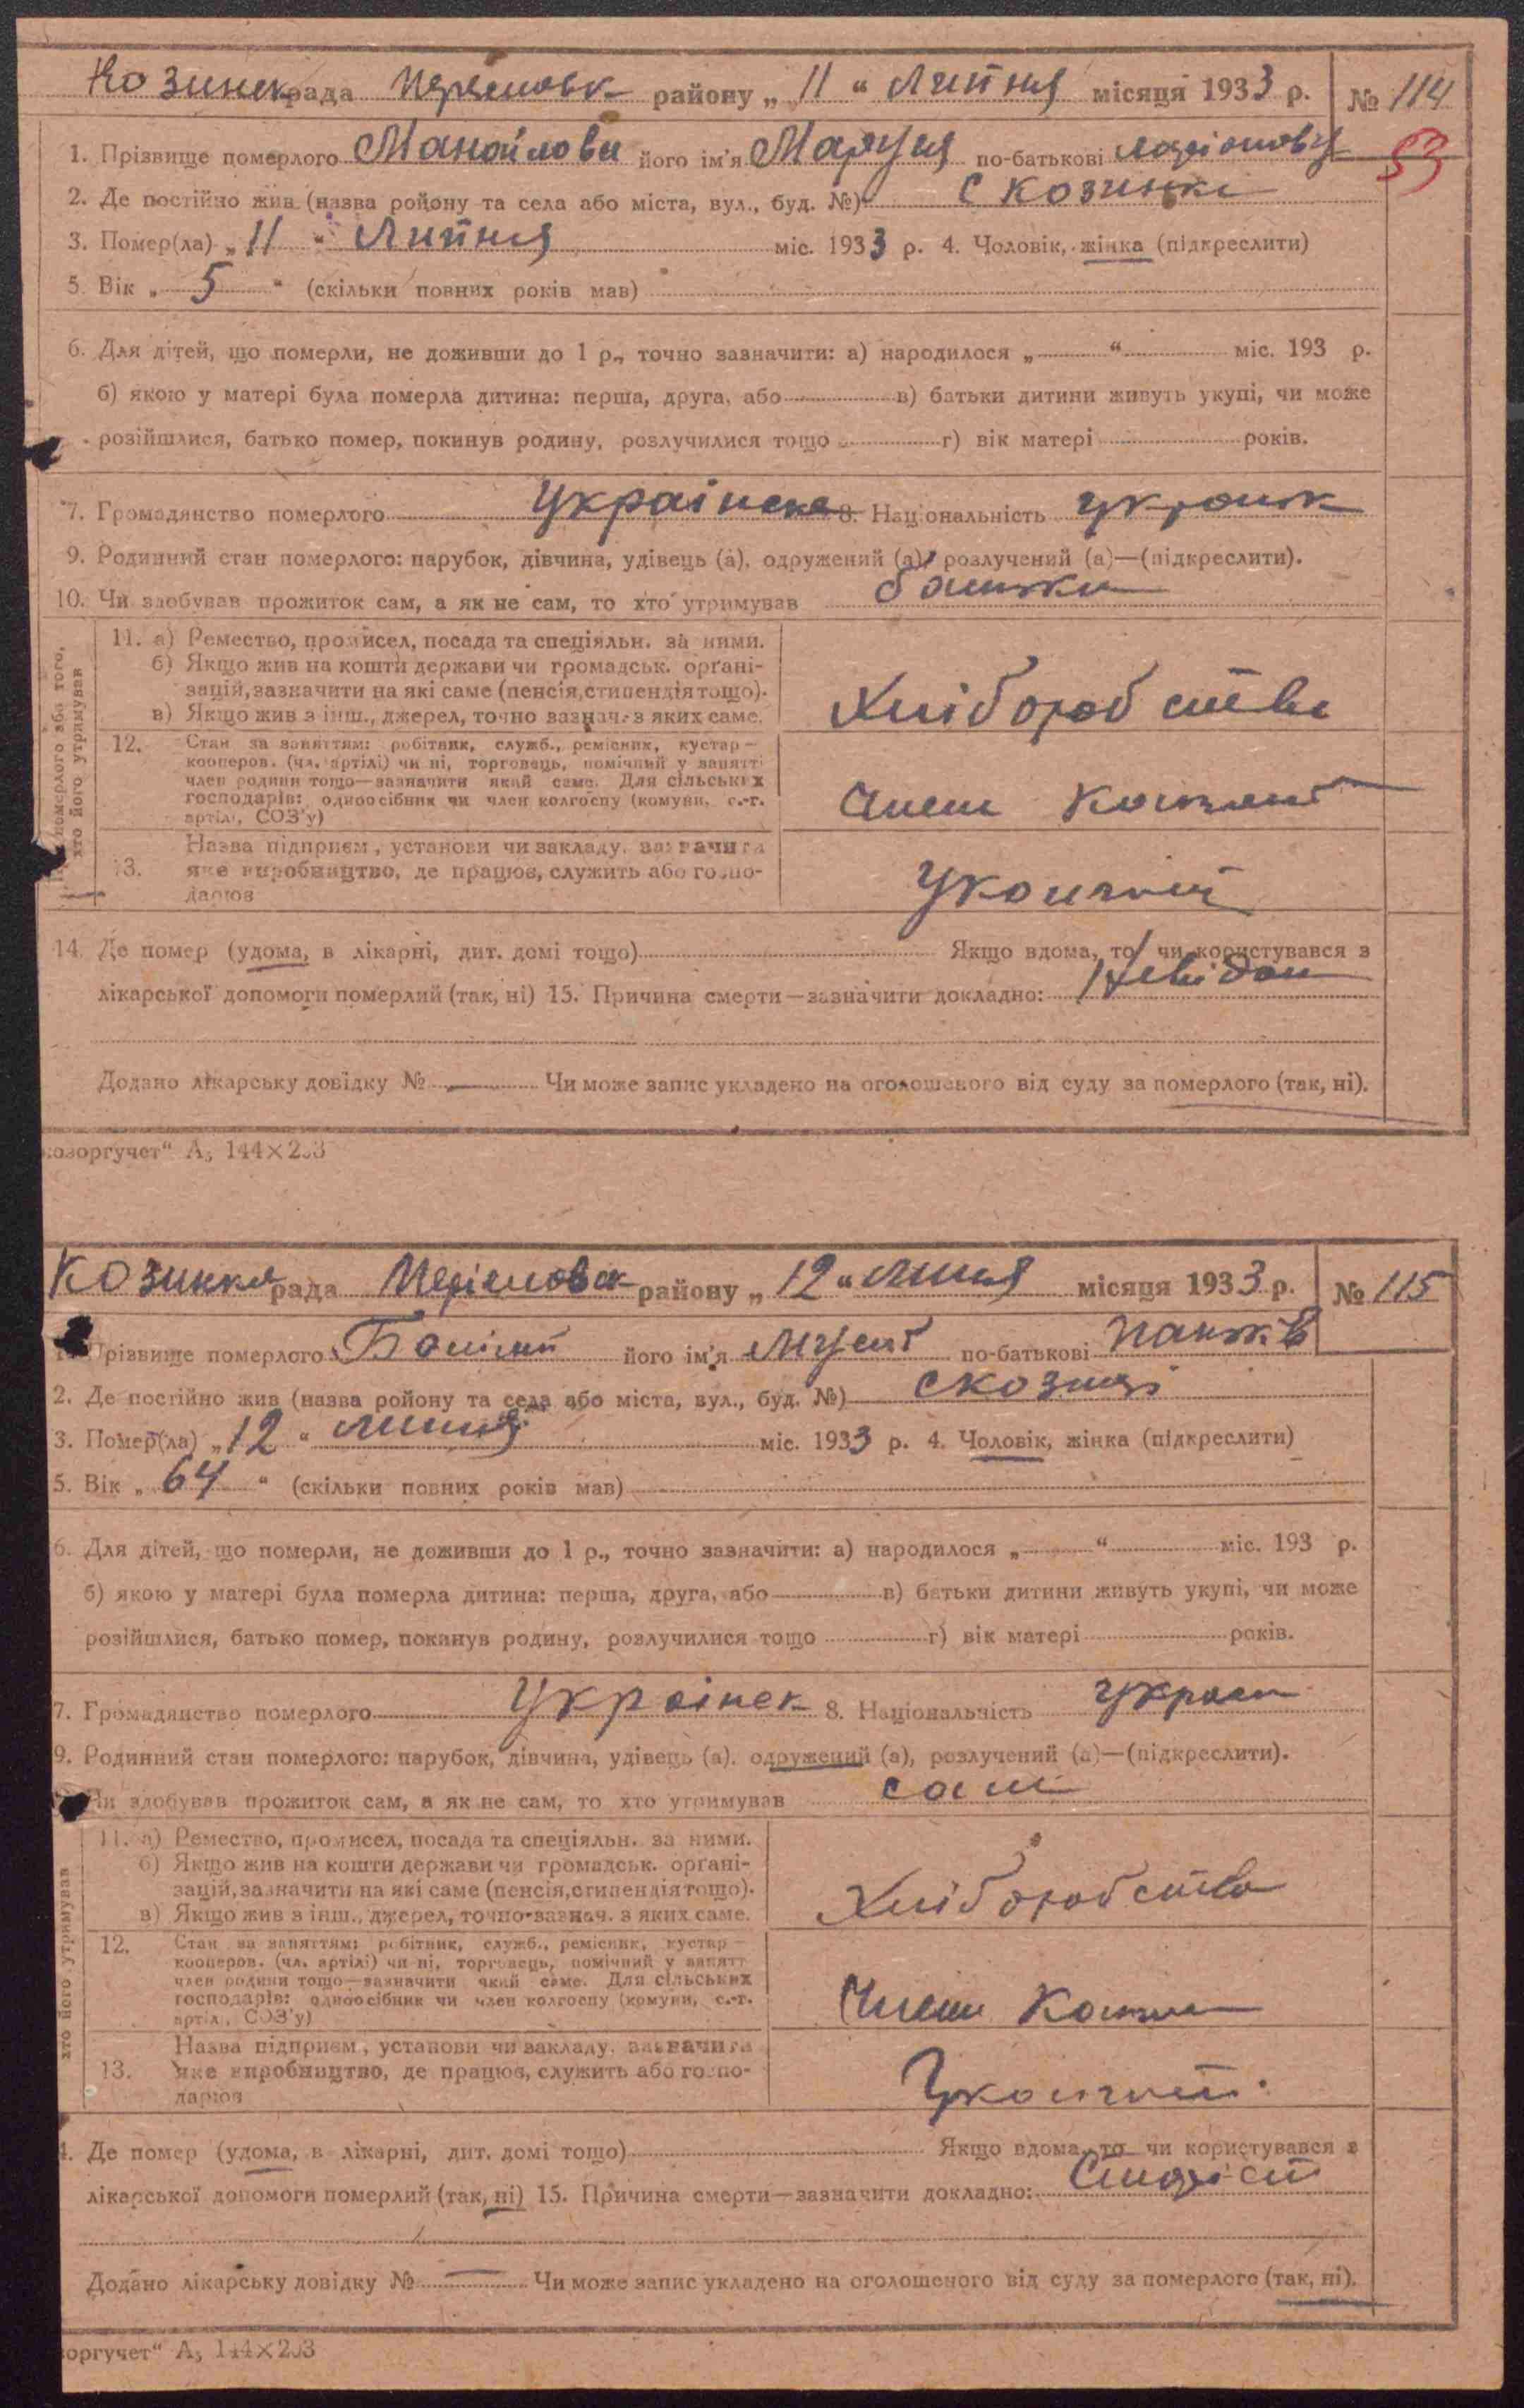 Козинск рада Переяславск району „11“ Липня місяця 1933 р. № 114
53
1. Прізвище померлого Манойлова його ім'я Маруся по-батькові
2. Де постійно жив (назва ройону та села або міста, вул., буд. №) с Козинки
3. Помер(ла) „11“ Липня міс. 1933 р. 4. Чоловік, жінка (підкреслити)
5. Вік „5“ (скільки повних років мав)
6. Для дітей, що померли, не доживши до 1 р., точно зазначити: а) народилося „ “ міс. 193 р.
б) якою у матері була померла дитина: перша, друга, або в) батьки дитини живуть укупі, чи може
розійшлися, батько помер, покинув родину, розлучилися тощо г) вік матері років.
7. Громадянство померлого Українске 8. Національність украінк
9. Родинний стан померлого: парубок, дівчина, удівець (а), одружений (а), розлучений (а)—(підкреслити).
10. Чи здобував прожиток сам, а як не сам, то хто утримував батьки
померлого або того,
хто його утримував
11. а) Ремество, промисел, посада та спеціяльн. за ними.
б) Якщо жив на кошти держави чи громадськ. органі-
зацій, зазначити на які саме (пенсія, стипендія тощо).
в) Якщо жив з інш., джерел, точно зазнач. з яких саме.
Хліборобства
12. Стан за заняттям: робітник, служб., ремісник, кустар—
кооперов. (чл. артілі) чи ні, торговець, помічний у занятті
член родини тощо—зазначити який саме. Для сільських
господарів: одноосібник чи член колгоспу (комуни, с.-г.
артілі, СОЗ'у)
Член
13. Назва підприєм., установи чи закладу, зазначити
яке виробництво, де працює, служить або госпо-
дарює
14. Де помер (удома, в лікарні, дит. домі тощо) Якщо вдома, то чи користувався з
лікарської допомоги померлий (так, ні) 15. Причина смерти—зазначити докладно: Невідом
Додано лікарську довідку № — Чи може запис укладено на оголошеного від суду за померлого (так, ні).
озоргучет“ А5 144×203
Козинка рада району „12“ липня місяця 1933 р. № 115
1. Прізвище померлого його ім'я Мусій по-батькові
2. Де постійно жив (назва ройону та села або міста, вул., буд. №) с Козинці
3. Помер(ла) „12“ липня міс. 1933 р. 4. Чоловік, жінка (підкреслити)
5. Вік „64“ (скільки повних років мав)
6. Для дітей, що померли, не доживши до 1 р., точно зазначити: а) народилося „ “ міс. 193 р.
б) якою у матері була померла дитина: перша, друга, або в) батьки дитини живуть укупі, чи може
розійшлися, батько помер, покинув родину, розлучилися тощо г) вік матері років.
7. Громадянство померлого Українск 8. Національність україн
9. Родинний стан померлого: парубок, дівчина, удівець (а), одружений (а), розлучений (а)—(підкреслити).
Чи здобував прожиток сам, а як не сам, то хто утримував сам
хто його утримував
11. а) Ремество, промисел, посада та спеціяльн. за ними.
б) Якщо жив на кошти держави чи громадськ. органі-
зацій, зазначити на які саме (пенсія, стипендія тощо).
в) Якщо жив з інш., джерел, точно зазнач. з яких саме.
Хліборобство
12. Стан за заняттям: робітник, служб., ремісник, кустар—
кооперов. (чл. артілі) чи ні, торговець, помічний у занятт
член родини тощо—зазначити який саме. Для сільських
господарів: одноосібник чи член колгоспу (комуни, с.-г.
артілі, СОЗ'у)
Член
13. Назва підприєм., установи чи закладу, зазначити
яке виробництво, де працює, служить або госпо-
дарює
Де помер (удома, в лікарні, дит. домі тощо) Якщо вдома, то чи користувався з
лікарської допомоги померлий (так, ні) 15. Причина смерти—зазначити докладно: Старіст
Додано лікарську довідку № — Чи може запис укладено на оголошеного від суду за померлого (так, ні).
оргучет“ А5 144×203